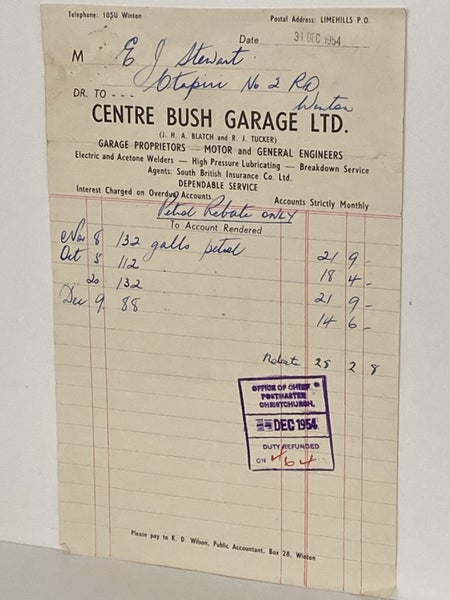 Telephone: 105U Winton
Postal Address: LIMEHILLS P.O.
Date 31 DEC 1954
M E J Stewart
Otapiri No 2 RD
Winton
DR. TO - - -
CENTRE BUSH GARAGE LTD.
(J. H. A. BLATCH and R. J. TUCKER)
GARAGE PROPRIETORS — MOTOR and GENERAL ENGINEERS
Electric and Acetone Welders — High Pressure Lubricating — Breakdown Service
Agents: South British Insurance Co. Ltd.
DEPENDABLE SERVICE
Interest Charged on Overdue Accounts Accounts Strictly Monthly
Petrol Rebate only
To Account Rendered
Nov 8 132 galls petrol 21 9 -
Oct 5 112 18 4 -
20 132 21 9 -
Dec 9 88 14 6 -
Rebate 28 2 8
OFFICE OF CHIEF
POSTMASTER
CHRISTCHURCH.
DEC 1954
DUTY REFUNDED
ON 464
Please pay to K. D. Wilson, Public Accountant, Box 28, Winton